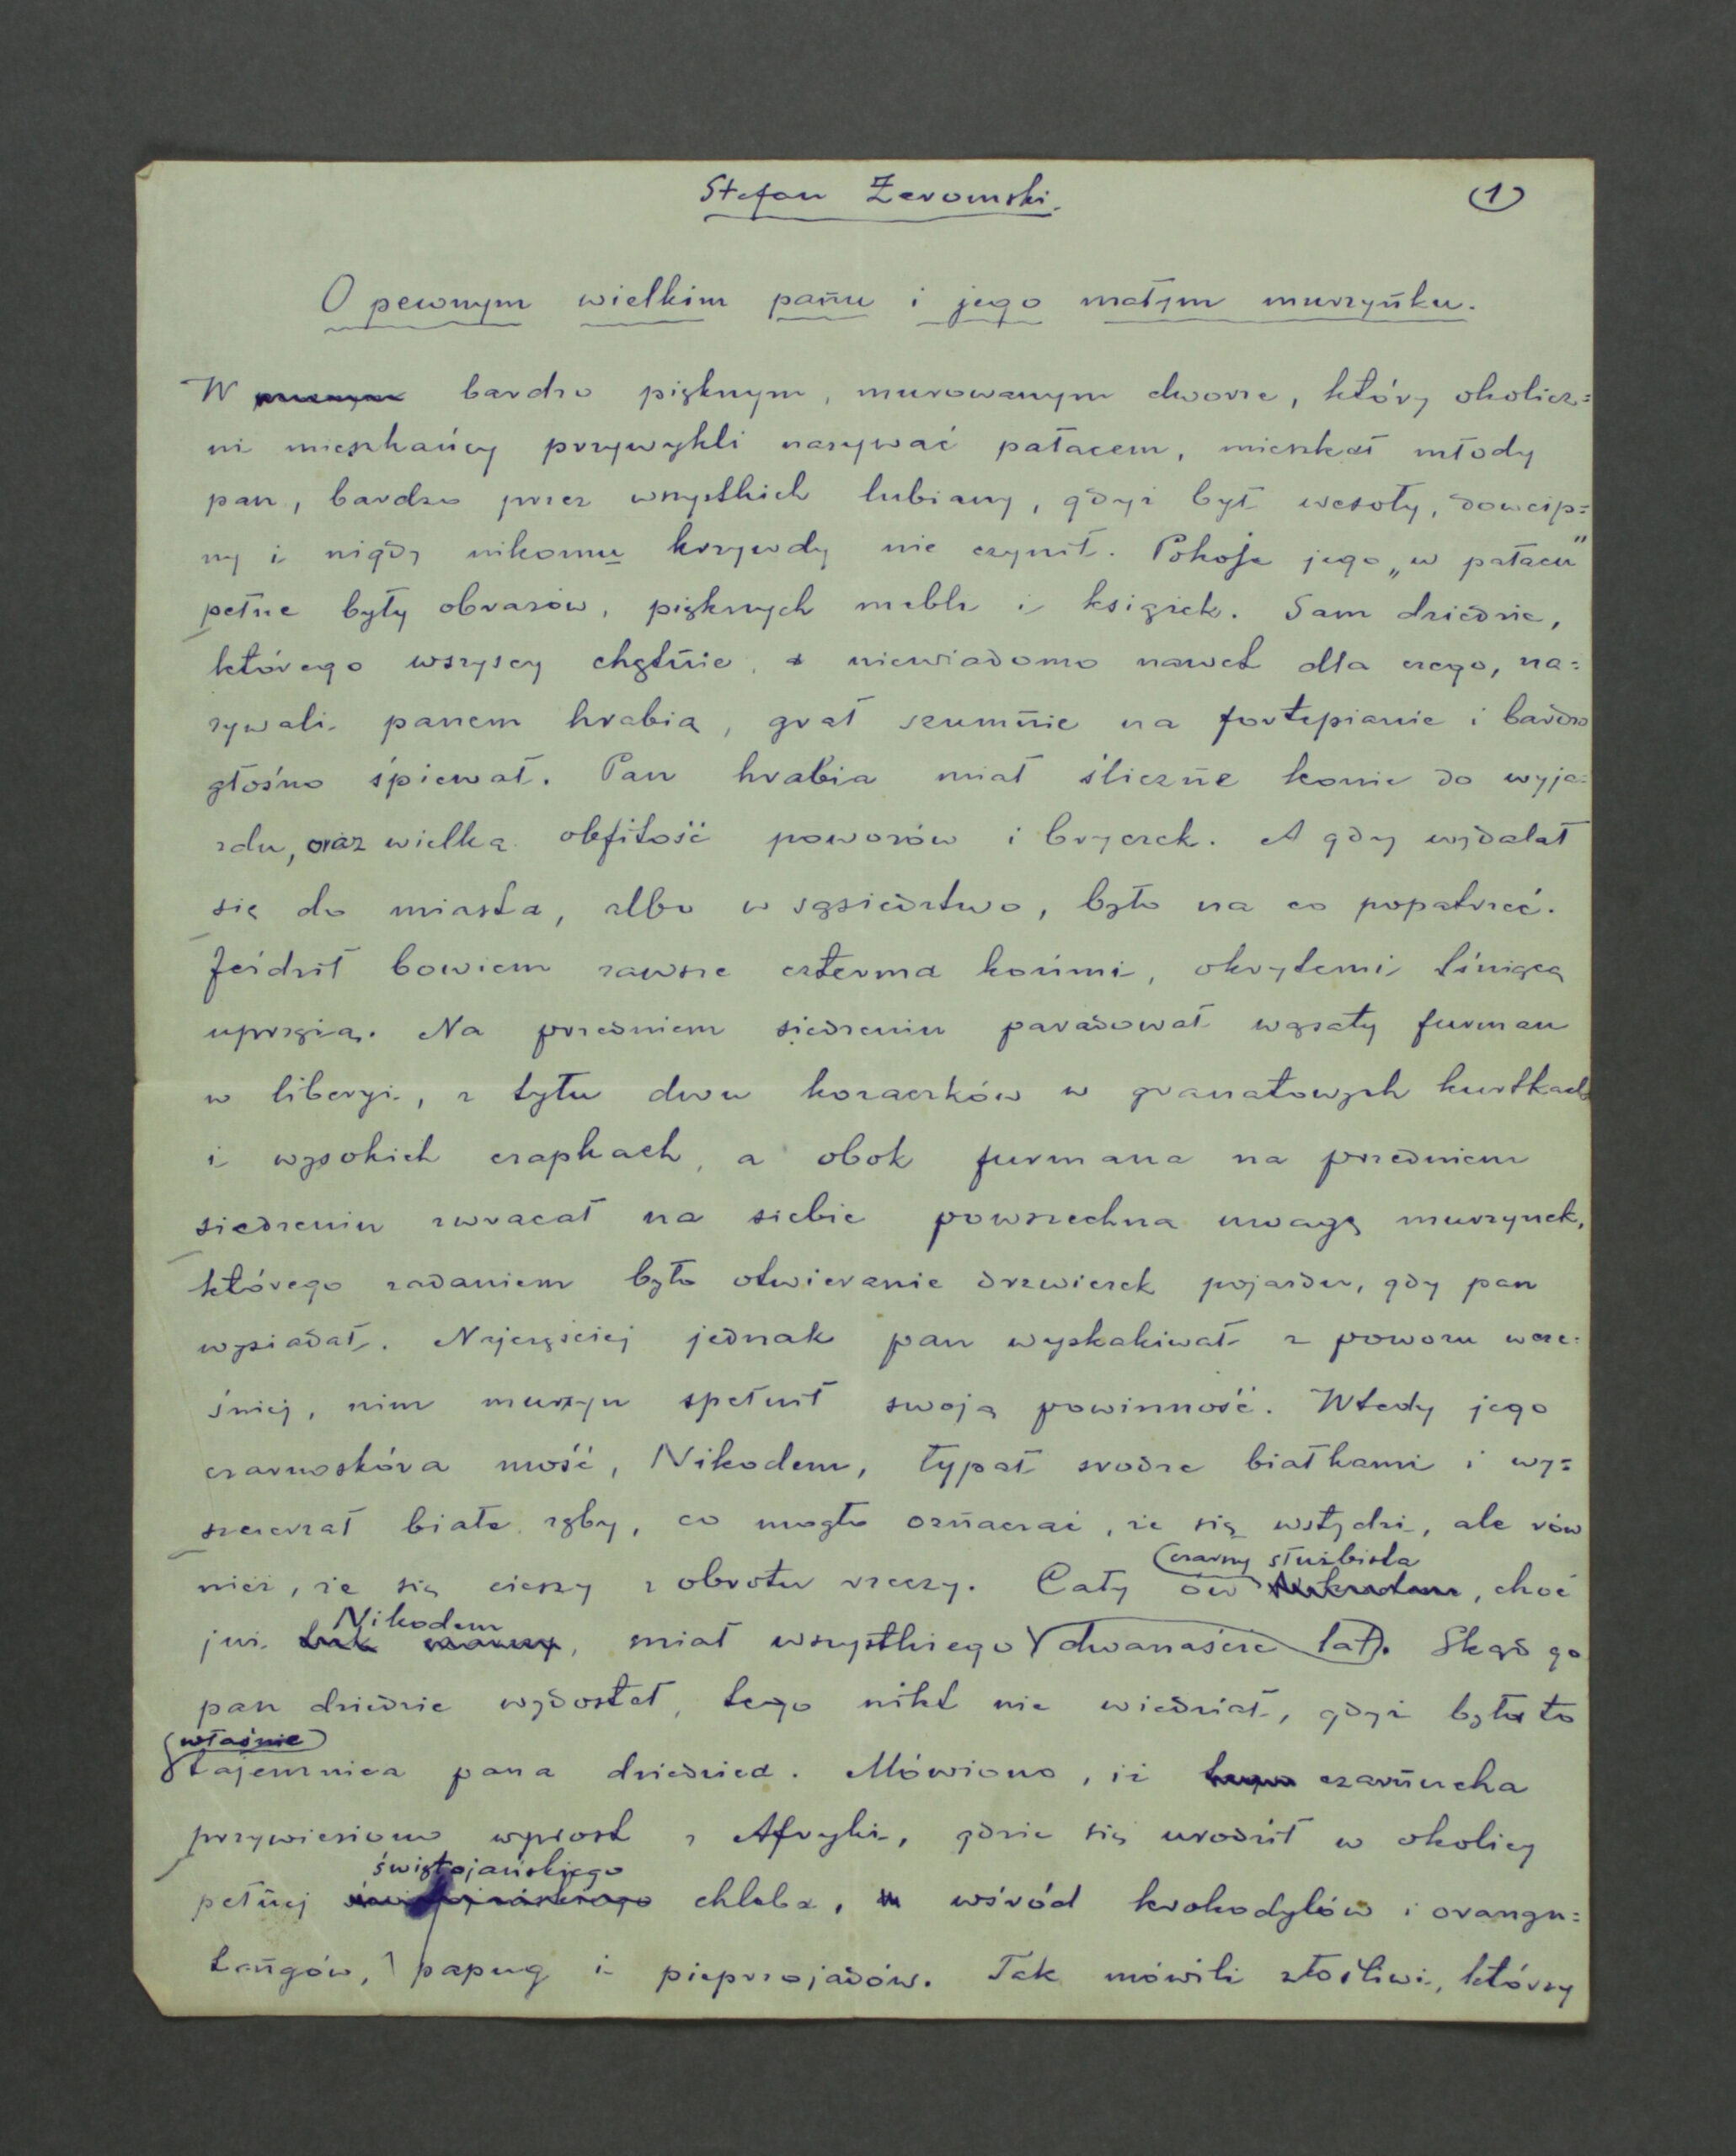 Stefan Żeromski.
(1)
O pewnym wielkim panu i jego małym murzynku.
W bardzo pięknym, murowanym dworze, który okolicz=
ni mieszkańcy przywykli nazywać pałacem, mieszkał młody
pan, bardzo przez wszystkich lubiany, gdyż był wesoły, dowcip=
ny i nigdy nikomu krzywdy nie czynił. Pokoje jego „w pałacu"
pełne były obrazów, pięknych mebli i książek. Sam dziedzic,
którego wszyscy chętnie, a niewiadomo nawet dla czego, na=
zywali panem hrabią, grał szumnie na fortepianie i bardzo
głośno śpiewał. Pan hrabia miał śliczne konie do wyja=
zdu, oraz wielką obfitość powozów i bryczek. A gdy wydalał
się do miasta, albo w sąsiedztwo, było na co popatrzeć.
Jeździł bowiem zawsze czterma końmi, okrytemi lśniącą
uprzężą. Na przedniem siedzeniu paradował wąsaty furman
w liberyi, z tyłu dwu kozaczków w granatowych kurtkach
i wysokich czapkach, a obok furmana na przedniem
siedzeniu zwracał na siebie powszechną uwagę murzynek,
którego zadaniem było otwieranie drzwiczek pojazdu, gdy pan
wysiadał. Najczęściej jednak pan wyskakiwał z powozu wcze=
śniej, nim murzyn spełnił swoją powinność. Wtedy jego
czarnoskóra mość, Nikodem, łypał srodze białkami i wy=
szczerzał białe zęby, co mogło oznaczać, że się wstydzi, ale rów
nież, że się cieszy z obrotu rzeczy. Cały ów czarny służbista Nikodem, choć
już Nikodem, miał wszystkiego dwanaście lat. Skąd go
pan dziedzic wydostał, tego nikt nie wiedział, gdyż była to
właśnie tajemnica pana dziedzica. Mówiono, iż czarnucha
przywieziono wprost z Afryki, gdzie się urodził w okolicy
pełnej świętojańskiego chleba, wśród krokodylów i orangu=
tangów, papug i pieprzojadów. Tak mówili złośliwi, którzy